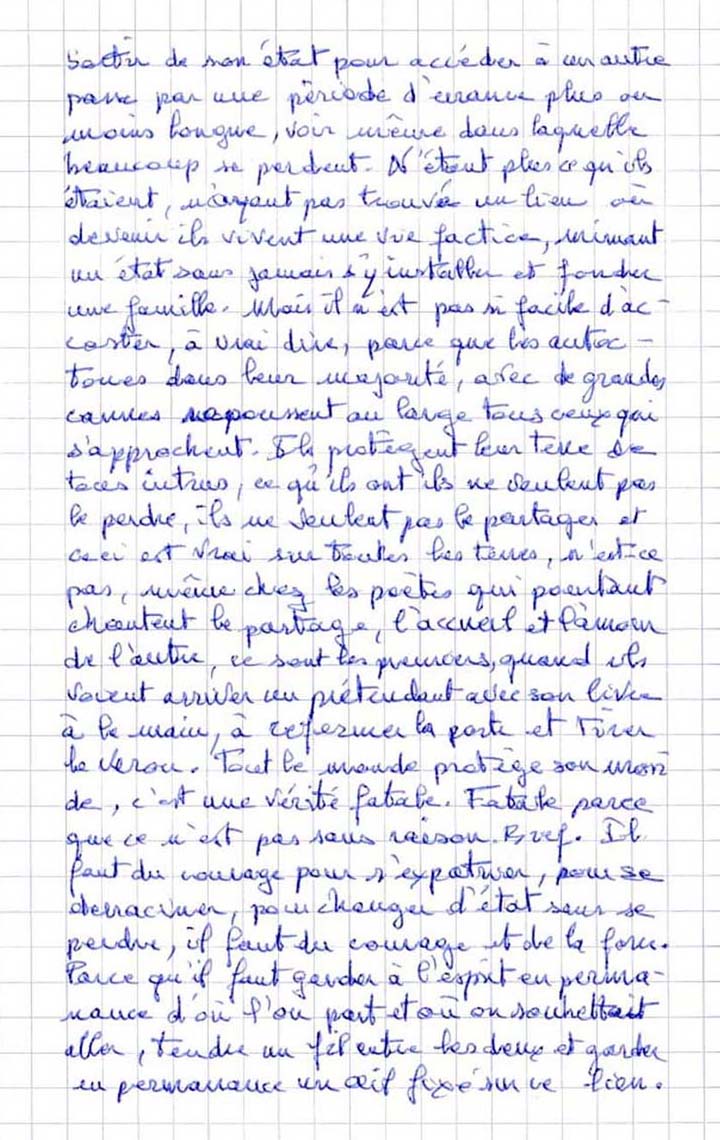 Sortir de son état pour accéder à un autre
passe par une période d'errance plus ou
moins longue, voir même dans laquelle
beaucoup se perdent. N'étant plus ce qu'ils
étaient, n'ayant pas trouvé un lieu où
devenir ils vivent une vie factice, mimant
un état sans jamais s'y installer et fonder
une famille. Mais il n'est pas si facile d'ac-
coster, à vrai dire, parce que les autoc-
tones dans leur majorité, avec de grandes
cannes repoussent au large tous ceux qui
s'approchent. Ils protègent leur terre de
tous intrus, ce qu'ils ont ils ne veulent pas
le perdre, ils ne veulent pas le partager et
ceci est vrai sur toutes les terres, n'est-ce
pas, même chez les poètes qui pourtant
chantent le partage, l'accueil et l'amour
de l'autre, ce sont les premiers, quand ils
voient arriver un prétendant avec son livre
à la main, à refermer la porte et tirer
le verrou. Tout le monde protège son mon
de, c'est une vérité fatale. Fatale parce
que ce n'est pas sans raison. Bref. Il
faut du courage pour s'expatrier, pour se
déraciner, pour changer d'état sans se
perdre, il faut du courage et de la force.
Parce qu'il faut garder à l'esprit en perma-
nance d'où l'on part et où on souhettait
aller, tendre un fil entre les deux et garder
en permanance un œil fixé sur ce lien.